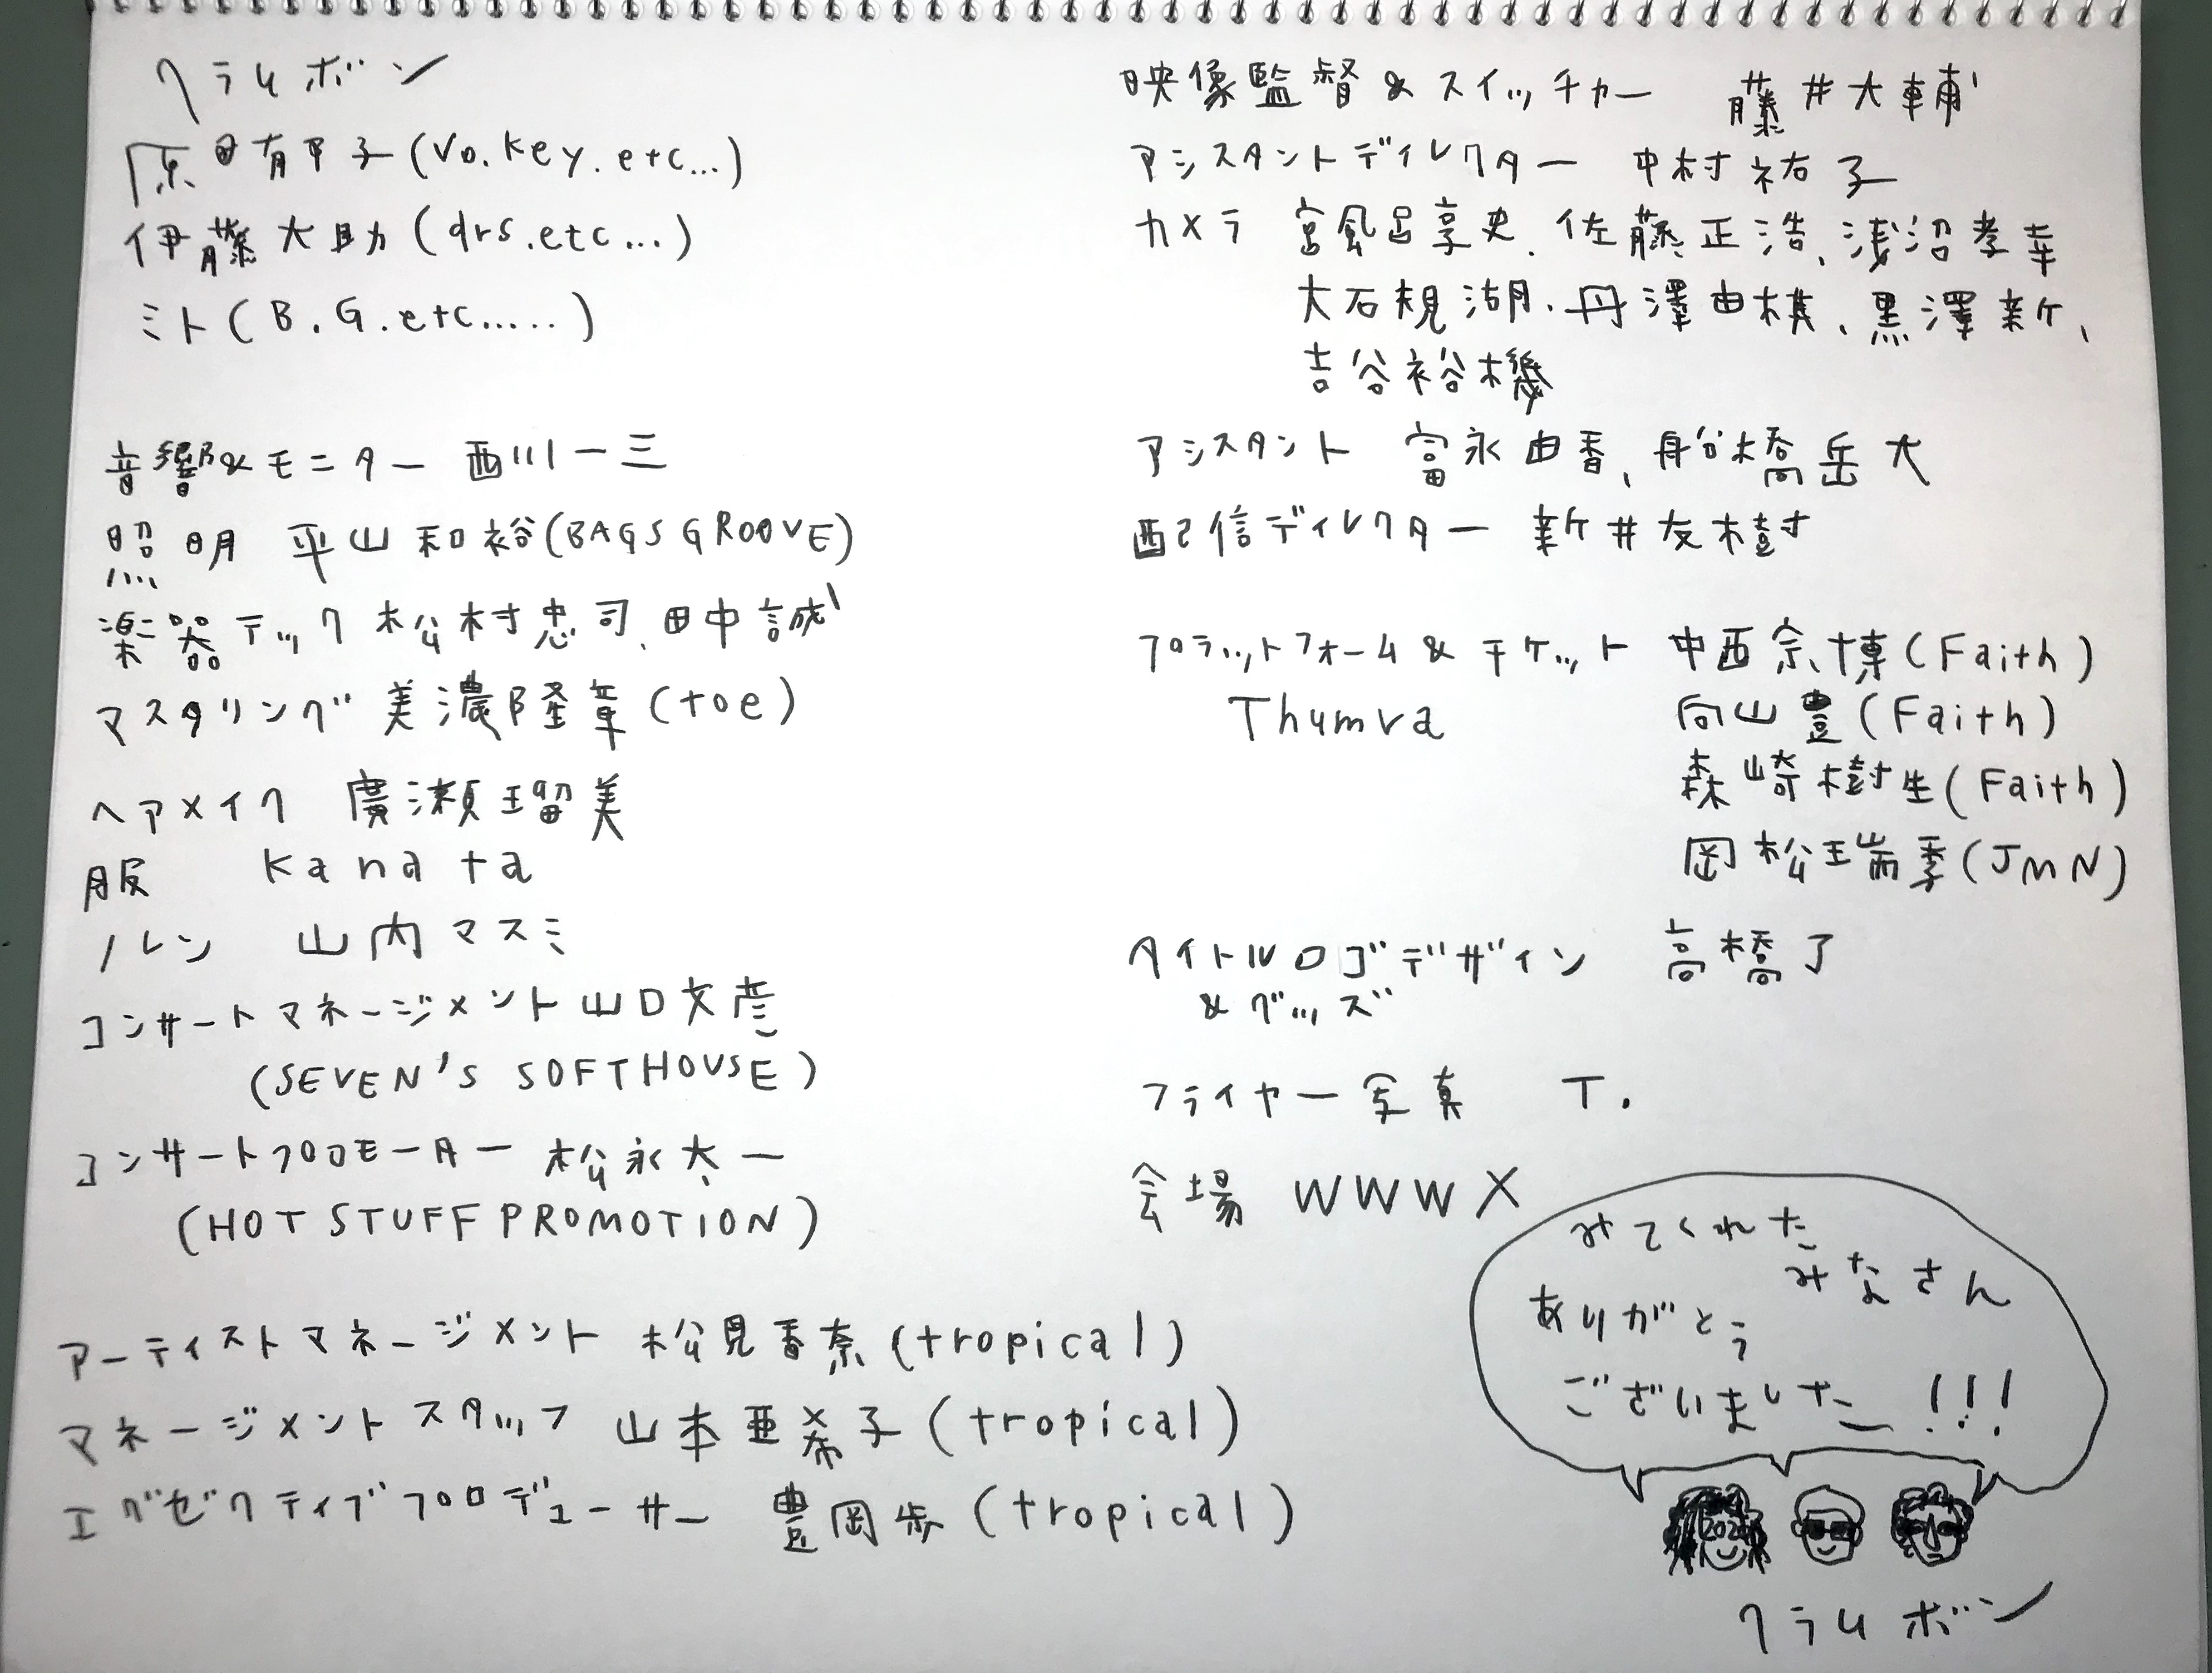 クラムボン
原田郁子(Vo.key.etc...)
伊藤大助(drs.etc...)
ミト(B.G.etc.....)
音響&モニター 西川一三
照明 平山和裕(BAGS GROOVE)
楽器テック 松村忠司、田中誠
マスタリング 美濃隆章(toe)
ヘアメイク 廣瀬瑠美
服 kanata
ノレン 山内マスミ
コンサートマネージメント 山口文彦
(SEVEN'S SOFTHOUSE)
コンサートプロモーター 松永太一
(HOT STUFF PROMOTION)
アーティストマネージメント 松見香奈(tropical)
マネージメントスタッフ 山本亜希子(tropical)
エグゼクティブプロデューサー 豊岡歩(tropical)
映像監督&スイッチャー 藤井大輔
アシスタントディレクター 中村祐子
カメラ 宮風呂享史、佐藤正浩、浅沼孝幸
大石規湖、丹澤由棋、黒澤新、
吉谷裕機
アシスタント 富永由香、船橋岳大
配信ディレクター 新井友樹
プラットフォーム&チケット 中西宗博(Faith)
Thumva 向山豊(Faith)
森崎樹生(Faith)
岡松瑞季(JMN)
タイトルロゴデザイン 高橋了
&グッズ
フライヤー写真 T.
会場 WWW X
みてくれた
みなさん
ありがとう
ございました!!!
2020
クラムボン